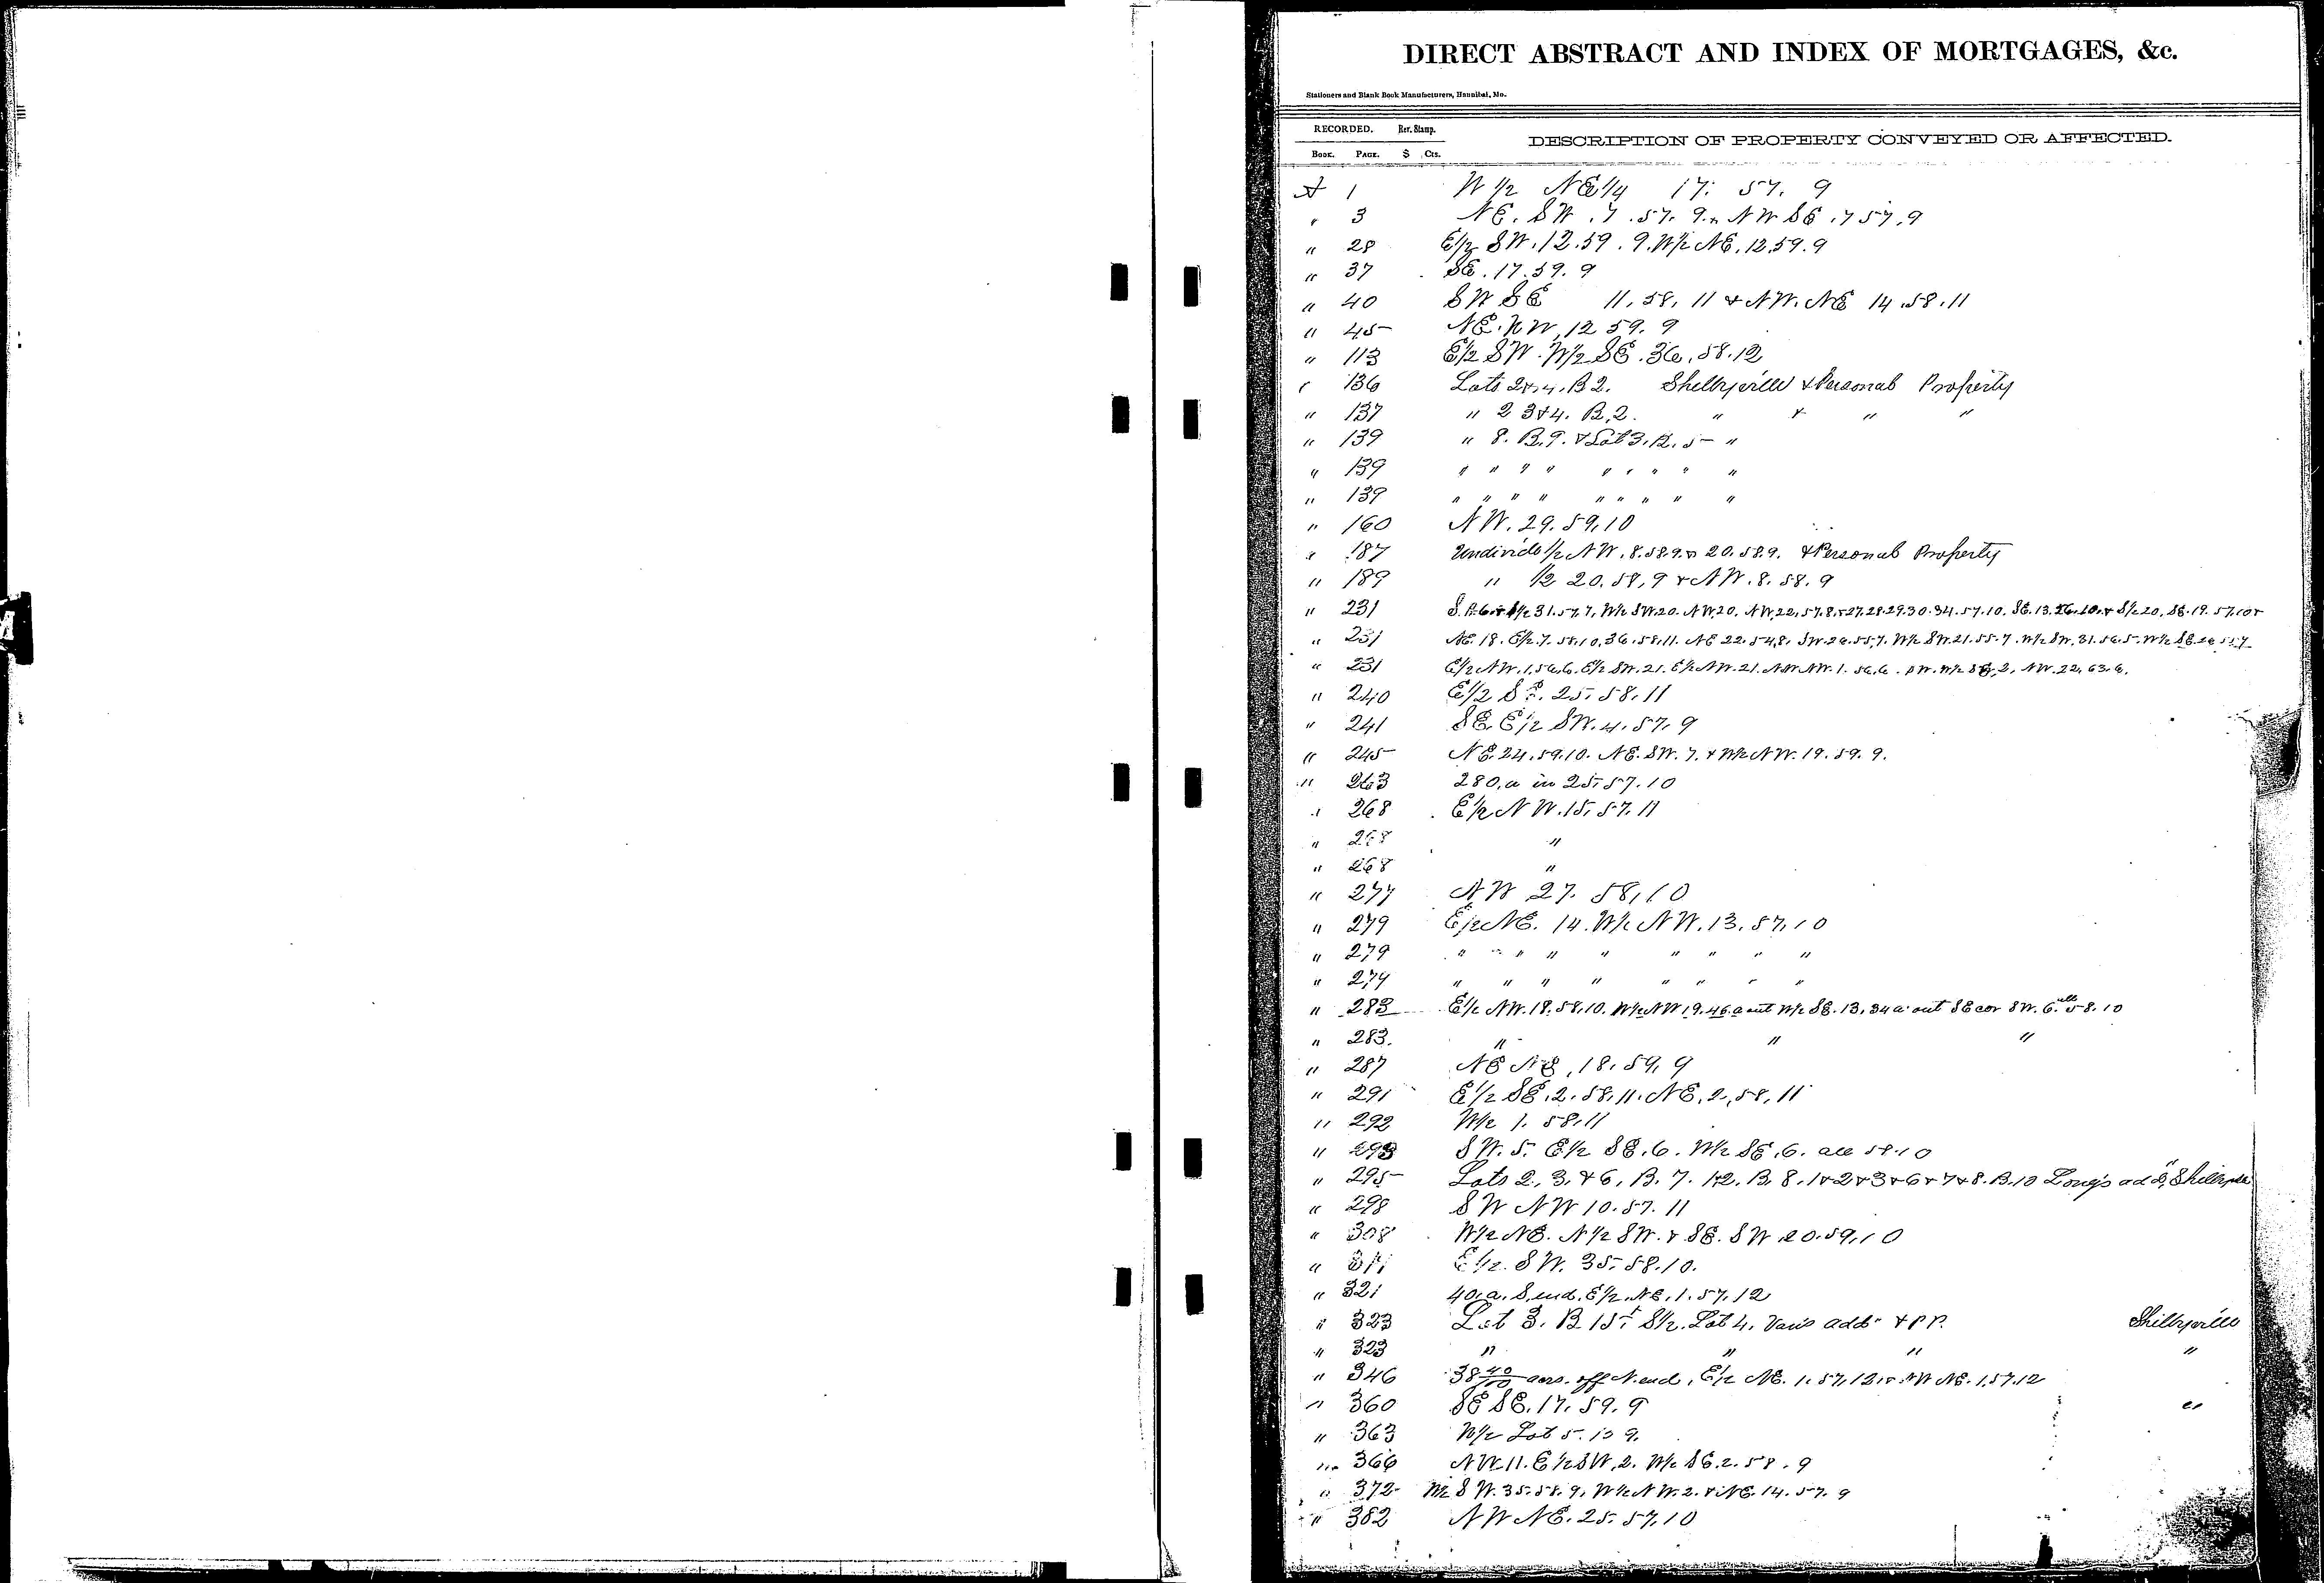 DIRECT ABSTRACT AND INDEX OF MORTGAGES, &c.
Stationers and Blank Book Manufacturers, Hannibal, Mo.
RECORDED. Rev. Stamp.
DESCRIPTION OF PROPERTY CONVEYED OR AFFECTED.
Book. Page. $ Cts.
A 1 W 1/2 NE 1/4 17. 57. 9
" 3 NE. SW. 7. 57. 9. & NW SE. 7 57. 9
" 28 E 1/2 SW. 12. 59. 9. W 1/2 NE. 12. 59. 9
" 37 SE. 17. 59. 9
" 40 SW SE 11. 58. 11 & NW. NE 14. 58. 11
" 45 NE. NW. 12 59. 9
" 113 E 1/2 SW. W 1/2 SE. 36. 58. 12
" 136 Lots 2 4. B 2. Shelbyville & Personal Property
" 137 " 2 3 & 4. B. 2. " & " "
" 139 " 8. B. 9. & Lot 3. B. 5 "
" 139 " " " " " " " " "
" 139 " " " " " " " " "
" 160 NW. 29. 59. 10
" 187 Undivide 1/2 NW. 8. 58. 9. & 20. 58. 9. & Personal Property
" 189 " 1/2 20. 58. 9 & NW. 8. 58. 9
" 231 31. 57. 7. W 1/2 SW. 20. NW. 20. NW. 22. 57. 8. & 27. 28. 29. 30. 34. 57. 10. SE. 13. & S 1/2 20. SE. 19. 57. 10 &
" 231 NE. 18. E 1/2. 7. 58. 10. 36. 58. 11. NE 22. 54. 8. SW. 26. 55. 7. W 1/2 SW. 21. 55. 7. W 1/2 SW. 31. 56. 5. W 1/2 SE.
" 231 E 1/2 NW. 1. 56. 6. E 1/2 SW. 21. E 1/2 NW. 21. NW NW. 1. 56. 6. SW. W 1/2 SE. 2. NW. 22. 63. 6.
" 240 E 1/2 SE. 25. 58. 11
" 241 SE. E 1/2 SW. 4. 57. 9
" 245 NE. 24. 59. 10. NE. SW. 7. & W 1/2 NW. 19. 59. 9.
" 263 280. a in 25. 57. 10
" 268 E 1/2 NW. 15. 57. 11
" 268 "
" 268 "
" 277 NW 27. 58. 10
" 279 E 1/2 NE. 14. W 1/2 NW. 13. 57. 10
" 279 " " " " " " " " "
" 279 " " " " " " " " "
" 283 E 1/2 NW. 18. 58. 10. W 1/2 NW 19. 46. a out W 1/2 SE. 13. 34 a out SE cor SW. 6. all 58. 10
" 283. " " "
" 287 NE NE, 18. 59. 9
" 291 E 1/2 SE. 2. 58. 11. NE. 2. 58. 11
" 292 W 1/2 1. 58. 11
" 293 SW. 5. E 1/2 SE. 6. W 1/2 SE. 6. all 58. 10
" 295 Lots 2. 3. & 6. B. 7. 1 & 2. B. 8. 1 & 2 & 3 & 6 & 7 & 8. B. 10 Long's add, Shelbyville
" 298 SW NW 10. 57. 11
" 308 W 1/2 NE. N 1/2 SW. & SE. SW 20. 59. 10
" E 1/2. SW. 35. 58. 10.
" 321 40. a. S. end. E 1/2. NE. 1. 57. 12
" 323 Lot 3. B 15 & S 1/2. Lot 4. Van's add & P P. Shelbyville
" 323 " " " "
" 346 38 40/100 acrs. off N. end, E 1/2 NE. 1. 57. 12. & NW NE. 1. 57. 12
" 360 SE SE. 17. 59. 9 "
" 363 W 1/2 Lot 5. B 9.
" 366 NW. 11. E 1/2 SW. 2. W 1/2 SE. 2. 58. 9
" 372 W 1/2 SW. 35. 58. 9. W 1/2 NW. 2. & NE. 14. 57. 9
" 382 NW NE. 25. 57. 10